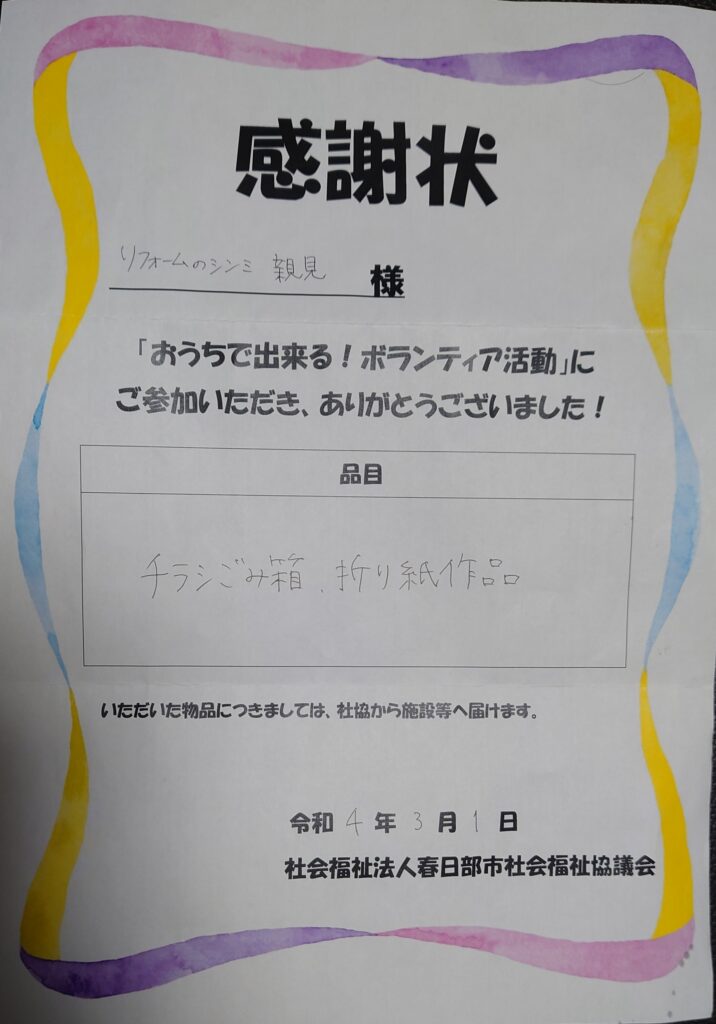 感謝状
リフォームのシンミ 親見 様
「おうちで出来る！ボランティア活動」に
ご参加いただき、ありがとうございました！
品目
チラシごみ箱、折り紙作品
いただいた物品につきましては、社協から施設等へ届けます。
令和 4 年 3 月 1 日
社会福祉法人春日部市社会福祉協議会